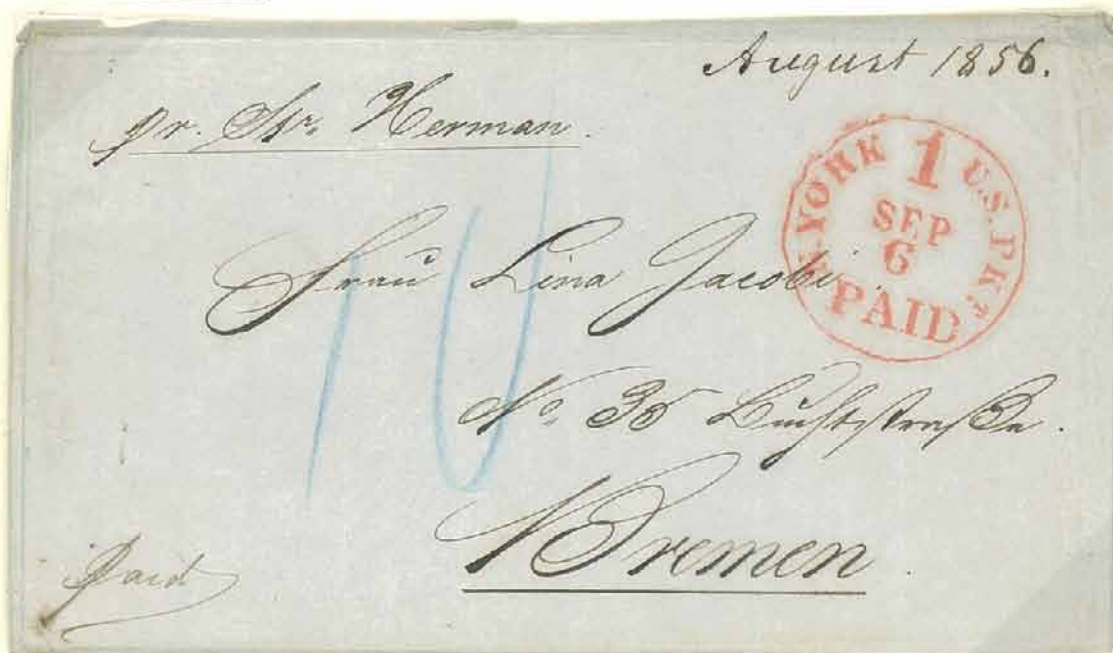 August 1856.
pr. Str. Herman.
N. YORK 1 U.S. PKT
SEP
6
PAID
10
Frau Lina Jacobi.
No 35 Buchtstraße.
Bremen.
Paid